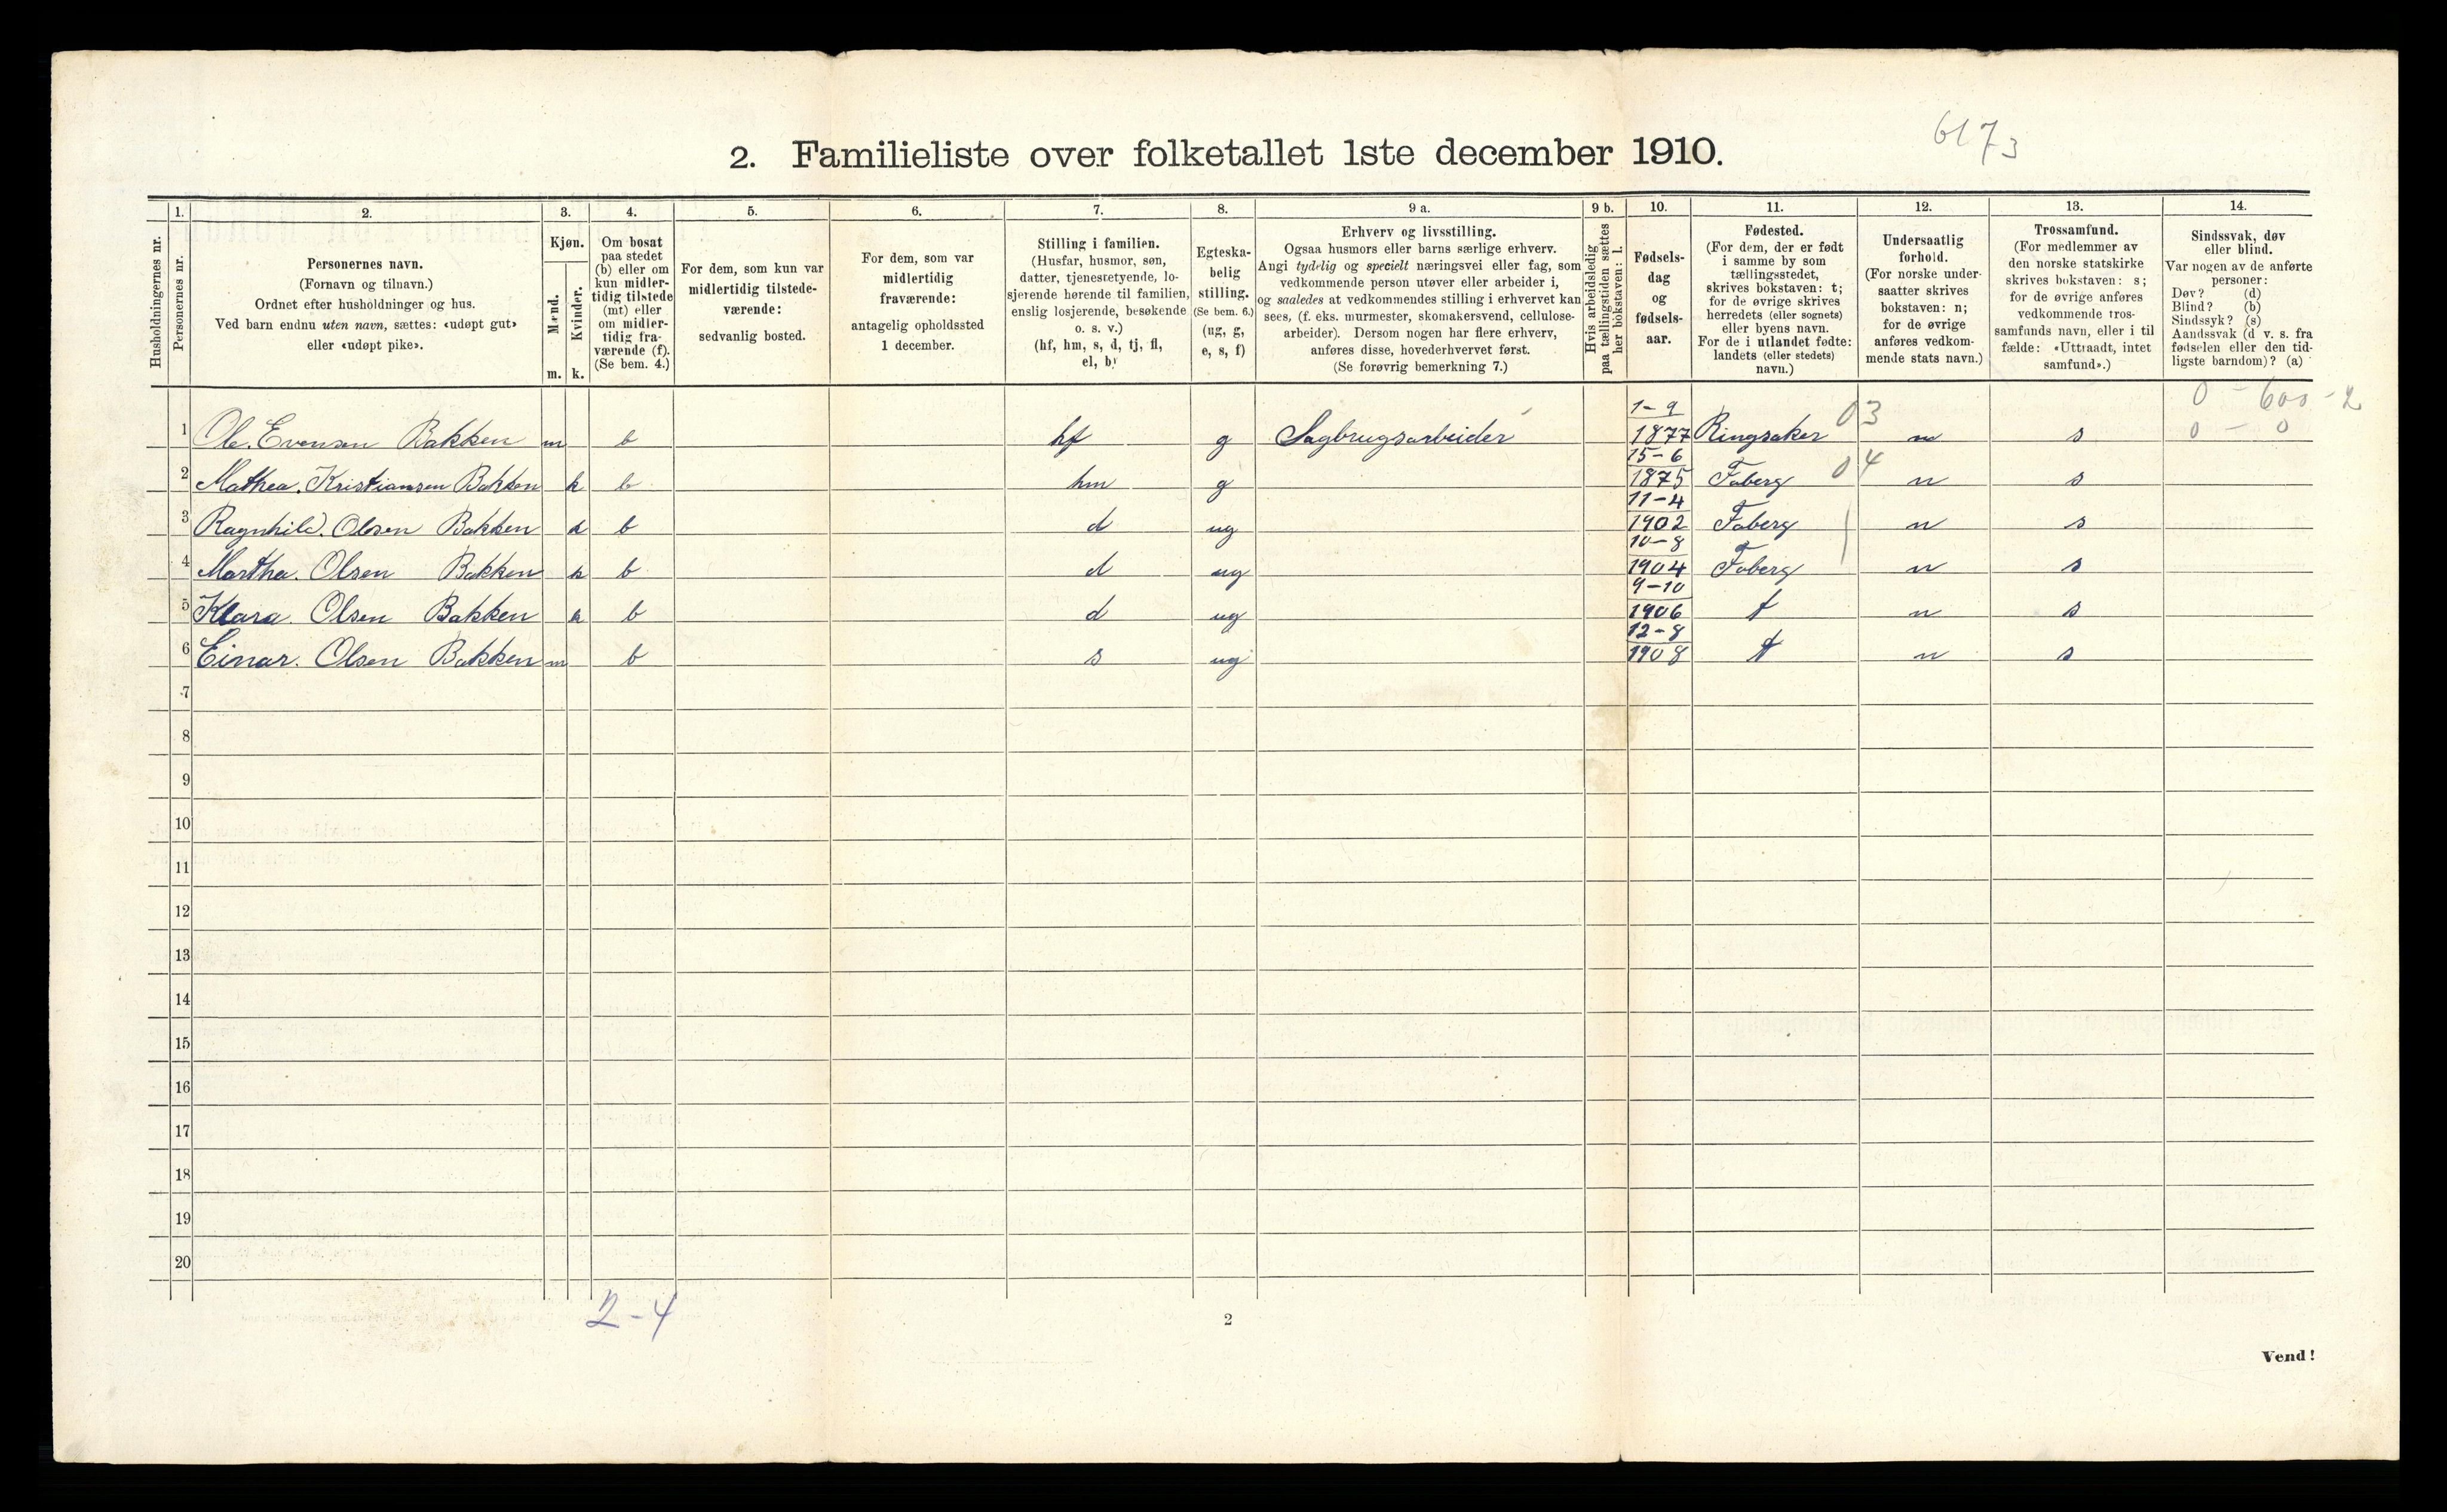 6173
2. Familieliste over folketallet 1ste december 1910.
Husholdningernes nr.
1.
Personernes nr.
2.
Personernes navn.
(Fornavn og tilnavn.)
Ordnet efter husholdninger og hus.
Ved barn endnu uten navn, sættes: «udøpt gut»
eller «udøpt pike».
3.
Kjøn.
Mænd.
Kvinder.
m. k.
4.
Om bosat
paa stedet
(b) eller om
kun midler-
tidig tilstede
(mt) eller
om midler-
tidig fra-
værende (f).
(Se bem. 4.)
5.
For dem, som kun var
midlertidig tilstede-
værende:
sedvanlig bosted.
6.
For dem, som var
midlertidig
fraværende:
antagelig opholdssted
1 december.
7.
Stilling i familien.
(Husfar, husmor, søn,
datter, tjenestetyende, lo-
sjerende hørende til familien,
enslig losjerende, besøkende
o. s. v.)
(hf, hm, s, d, tj, fl,
el, b)
8.
Egteska-
belig
stilling.
(Se bem. 6.)
(ug, g,
e, s, f)
9 a.
Erhverv og livsstilling.
Ogsaa husmors eller barns særlige erhverv.
Angi tydelig og specielt næringsvei eller fag, som
vedkommende person utøver eller arbeider i,
og saaledes at vedkommendes stilling i erhvervet kan
sees, (f. eks. murmester, skomakersvend, cellulose-
arbeider). Dersom nogen har flere erhverv,
anføres disse, hovederhvervet først.
(Se forøvrig bemerkning 7.)
9 b.
Hvis arbeidsledig
paa tællingstiden sættes
her bokstaven: l.
10.
Fødsels-
dag
og
fødsels-
aar.
11.
Fødested.
(For dem, der er født
i samme by som
tællingsstedet,
skrives bokstaven: t;
for de øvrige skrives
herredets (eller sognets)
eller byens navn.
For de i utlandet fødte:
landets (eller stedets)
navn.)
12.
Undersaatlig
forhold.
(For norske under-
saatter skrives
bokstaven: n;
for de øvrige
anføres vedkom-
mende stats navn.)
13.
Trossamfund.
(For medlemmer av
den norske statskirke
skrives bokstaven: s;
for de øvrige anføres
vedkommende tros-
samfunds navn, eller i til
fælde: «Uttraadt, intet
samfund».)
14.
Sindssvak, døv
eller blind.
Var nogen av de anførte
personer:
Døv? (d)
Blind? (b)
Sindssyk? (s)
Aandssvak (d v. s. fra
fødselen eller den tid-
ligste barndom)? (a)
0 - 600 - 2
0 - 0
1 Ole. Evensen Bakken m b hf g Sagbrugsarbeider 1-9 1877 Ringsaker 03 n s
2 Mathea. Kristiansen Bakken k b hm g 15-6 1875 Faberg 04 n s
3 Ragnhild. Olsen Bakken k b d ug 11-4 1902 Faberg n s
4 Martha. Olsen Bakken k b d ug 10-8 1904 Faberg n s
5 Klara. Olsen Bakken k b d ug 9-10 1906 t n s
6 Einar. Olsen Bakken m b s ug 12-8 1908 t n s
7
8
9
10
11
12
13
14
15
16
17
18
19
20
2-4
2
Vend!